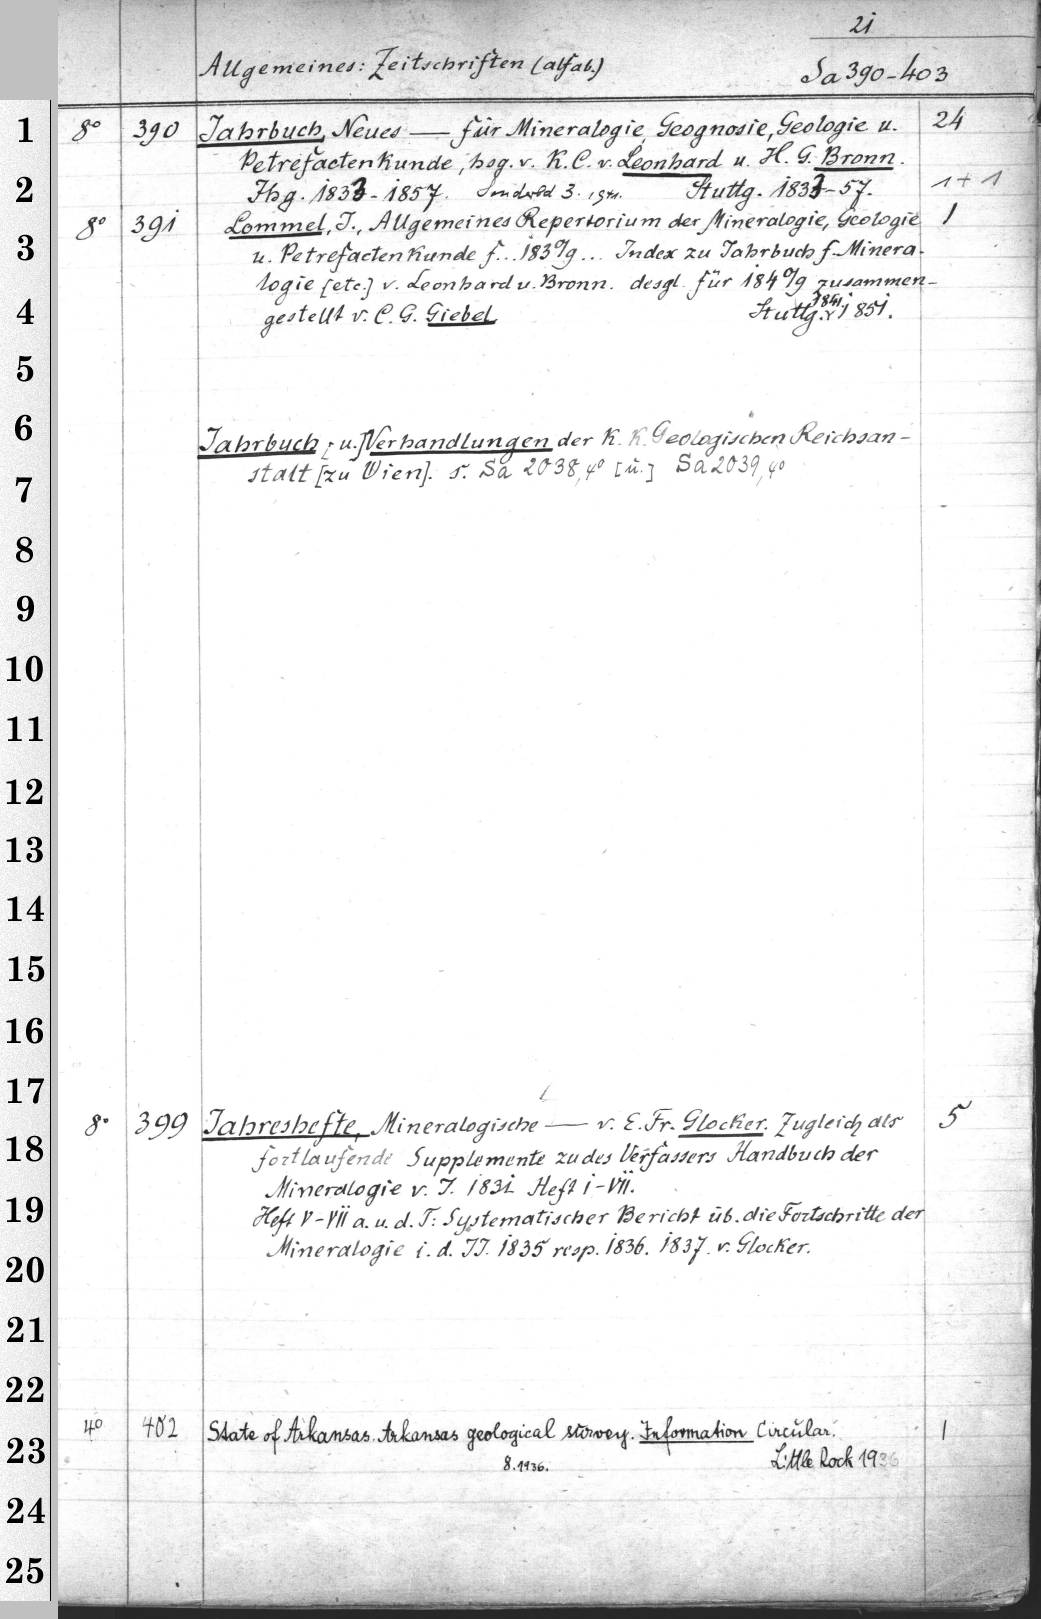 21
Allgemeines: Zeitschriften (alfab.) Sa 390-403
8° 390 Jahrbuch, Neues — für Mineralogie, Geognosie, Geologie u. 24
Petrefactenkunde, hsg. v. K. C. v. Leonhard u. H. G. Bronn.
Jhg. 1833-1857. 3. Stuttg. 1833-57. 1 + 1
8° 391 Lommel, J., Allgemeines Repertorium der Mineralogie, Geologie 1
u. Petrefactenkunde f... 1830/9... Index zu Jahrbuch f. Minera-
logie [etc.] v. Leonhard u. Bronn. desgl. für 1840/9 zusammen-
gestellt v. C. G. Giebel Stuttg. 1841. 1851.
Jahrbuch [u.] Verhandlungen der K. K. Geologischen Reichsan-
stalt [zu Wien]. s. Sa 2038, 4° [u.] Sa 2039, 4°
8° 399 Jahreshefte, Mineralogische — v. E. Fr. Glocker. Zugleich als 5
fortlaufende Supplemente zu des Verfassers Handbuch der
Mineralogie v. J. 1831 Heft I-VII.
Heft V-VII a. u. d. T: Systematischer Bericht üb. die Fortschritte der
Mineralogie i. d. JJ. 1835 resp. 1836. 1837. v. Glocker.
4° 402 State of Arkansas. Arkansas geological survey. Information Circular. 1
8.1936. Little Rock 1936
1
2
3
4
5
6
7
8
9
10
11
12
13
14
15
16
17
18
19
20
21
22
23
24
25